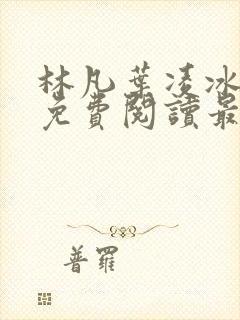 林凡葉凌冰
免費閱讀最
普羅